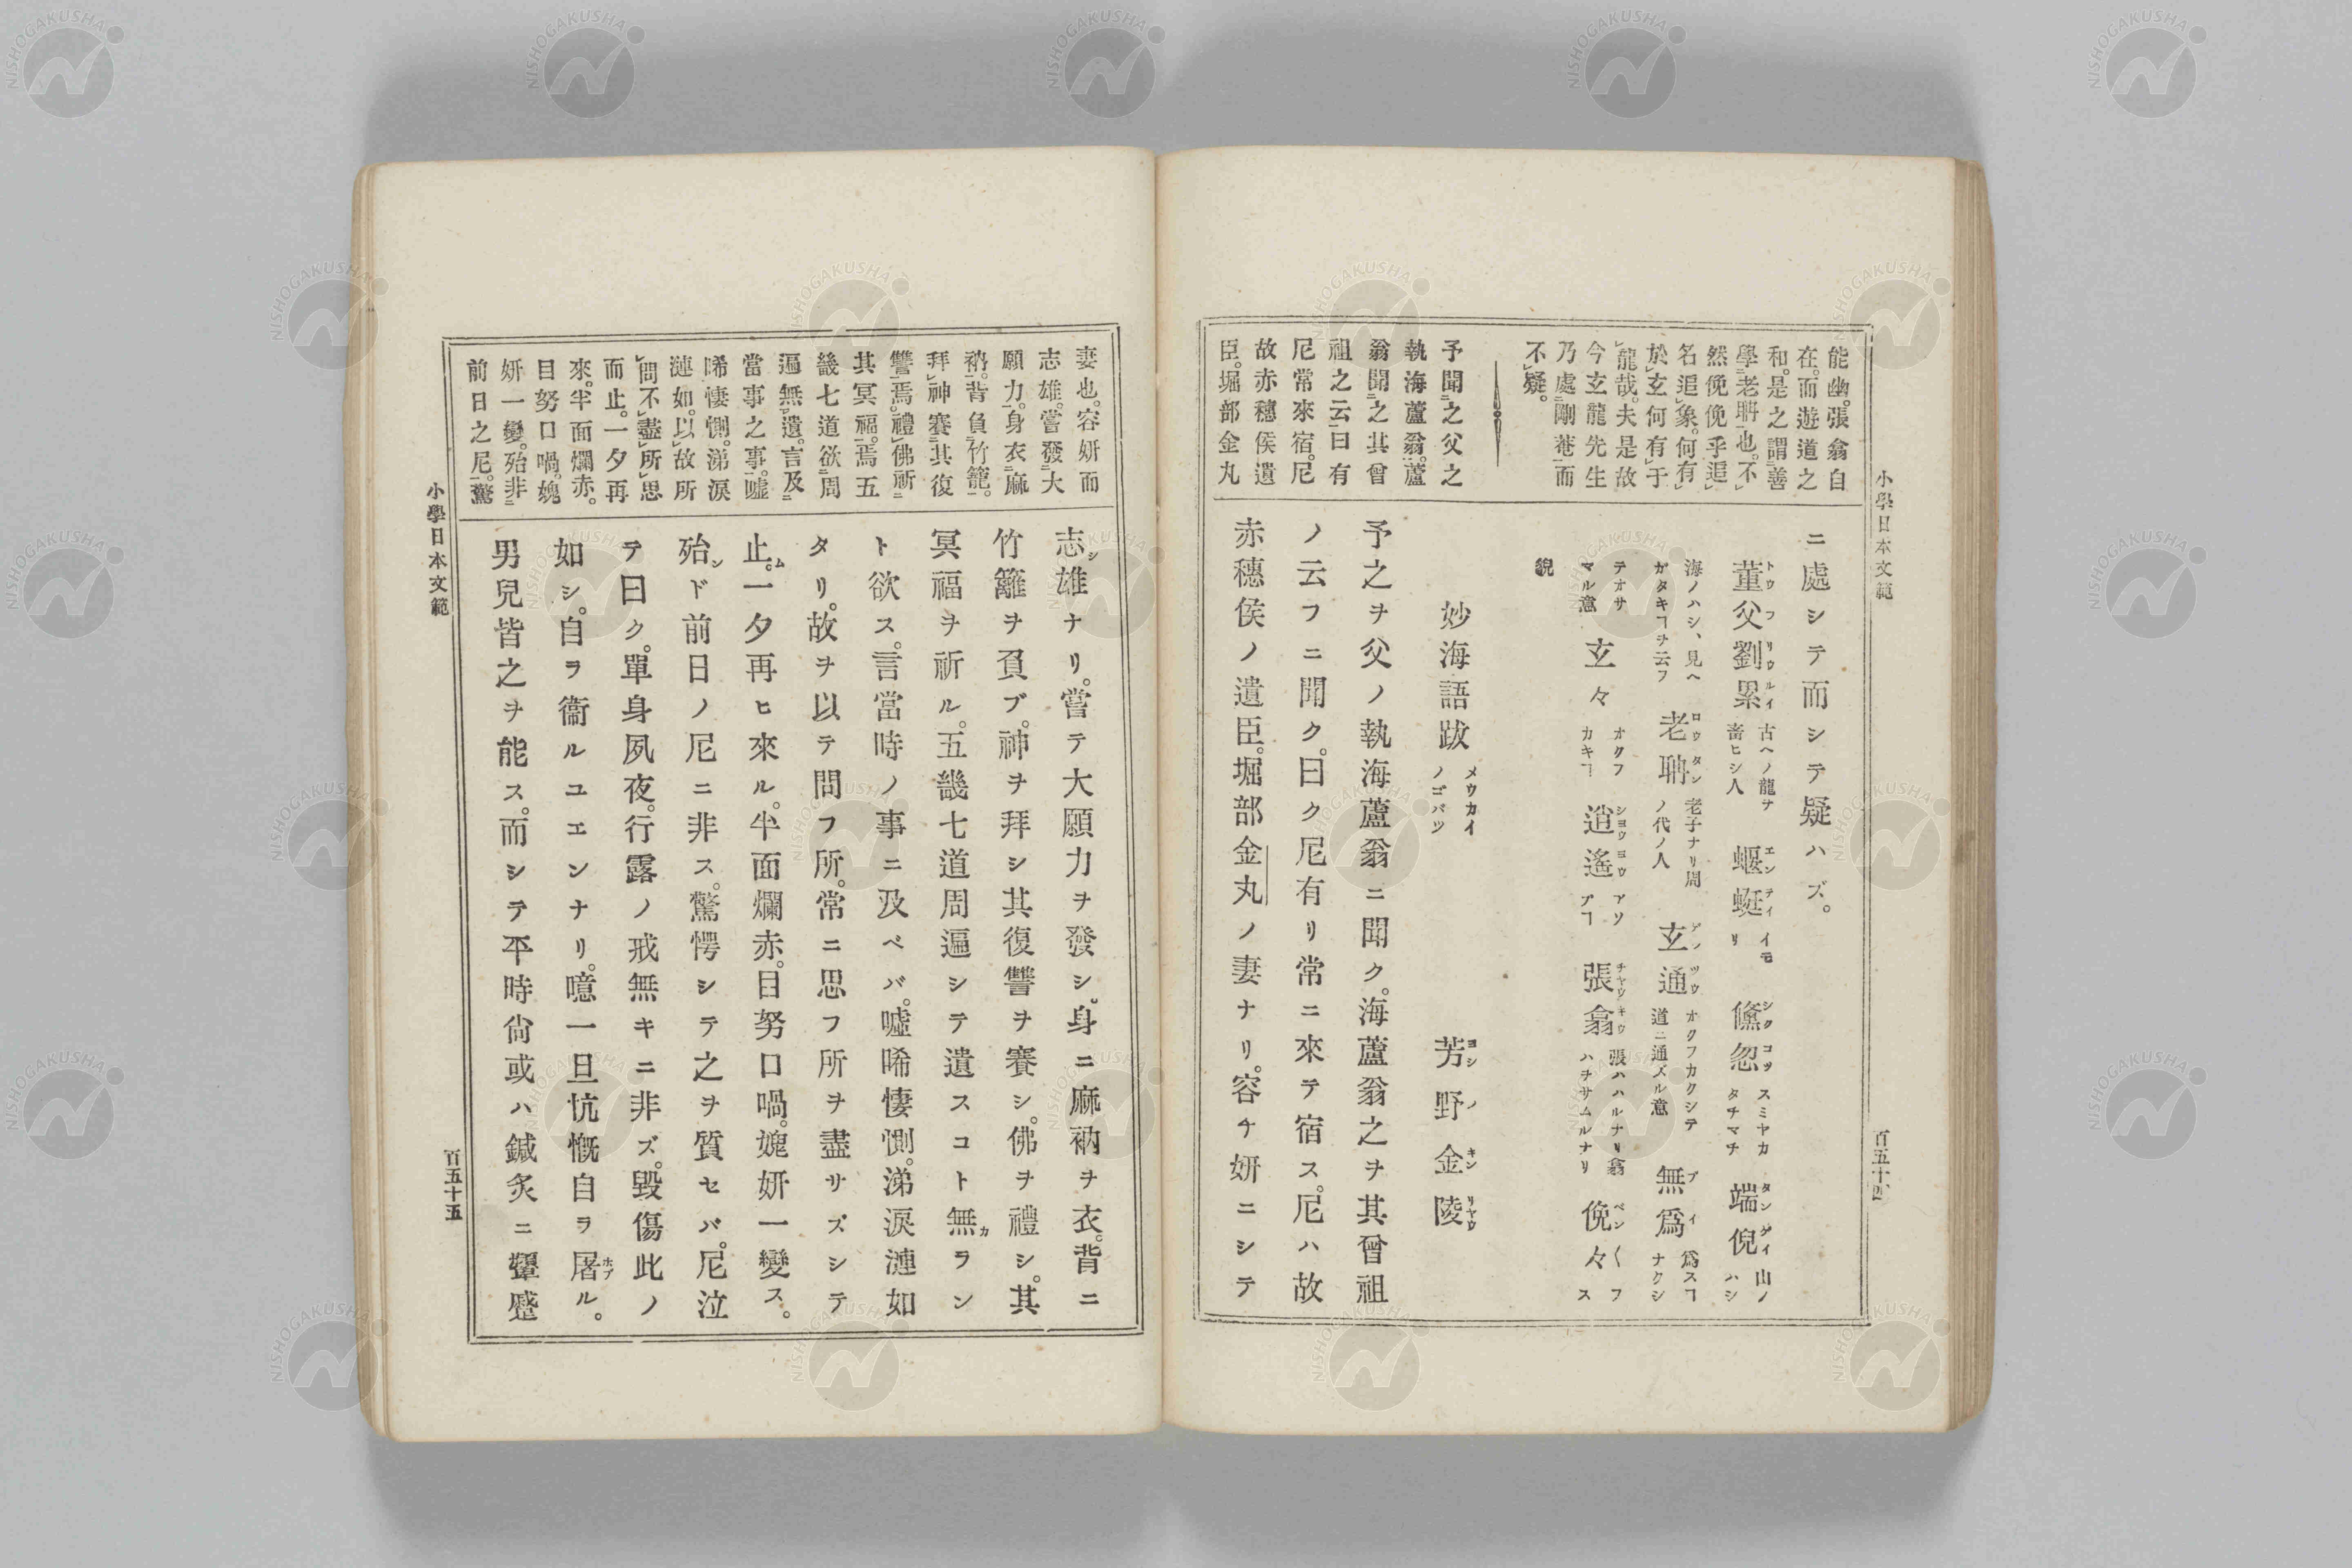 小學日本文範
百五十四
能幽。張翕自
在。而遊道之
和。是之謂善
學老聃也。不
然俛俛乎追
名追象。何有
於玄何有于
龍哉。夫是故
今玄龍先生
乃處剛菴而
不疑。
予聞之父之
執海蘆翁。蘆
翁聞之其曾
祖之云曰有
尼常來宿。尼
故赤穗侯遺
臣。堀部金丸
ニ處シテ而シテ疑ハズ。
董父劉累 古ヘノ龍ヲ畜ヒシ人 蝘蜓 イモリ 儵忽 スミヤカタチマチ 端倪 山ノハシ
海ノハシ、見ヘガタキヿヲ云フ 老聃 老子ナリ周ノ代ノ人 玄通 オクフカクシテ道ニ通ズル意 無爲 爲スヿナクシ
テオサマル意 玄々 オクフカキヿ 逍遙 アソブヿ 張翕 張ハハルナリ翕ハチサムルナリ 俛々 フス
貌
妙海語跋 メウカイノゴバツ 芳野金陵
予之ヲ父ノ執海蘆翁ニ聞ク。海蘆翁之ヲ其曾祖
ノ云フニ聞ク。曰ク尼有リ常ニ來テ宿ス。尼ハ故
赤穗侯ノ遺臣。堀部金丸ノ妻ナリ。容チ妍ニシテ
妻也。容妍而
志雄。嘗發大
願力。身衣麻
衲。背負竹籠。
拜神賽其復
讐焉。禮佛祈
其冥福。焉五
畿七道欲周
遍無遺。言及
當事之事。噓
唏悽惻。涕淚
漣如。以故所
問不盡所思
而止。一夕再
來。半面爛赤。
目努口喎。媿
妍一變。殆非
前日之尼。驚
志雄ナリ。嘗テ大願力ヲ發シ。身ニ麻衲ヲ衣。背ニ
竹籬ヲ負ブ。神ヲ拜シ其復讐ヲ賽シ。佛ヲ禮シ。其
冥福ヲ祈ル。五畿七道周遍シテ遺スコト無カラン
ト欲ス。言當時ノ事ニ及ベバ。噓唏悽惻。涕淚漣如
タリ。故ヲ以テ問フ所。常ニ思フ所ヲ盡サズシテ
止ム。一夕再ヒ來ル。半面爛赤。目努口喎。媿妍一變ス。
殆ンド前日ノ尼ニ非ス。驚愕シテ之ヲ質セバ。尼泣
テ曰ク。單身夙夜。行露ノ戒無キニ非ズ。毀傷此ノ
如シ。自ヲ衞ルユエンナリ。噫一旦忼慨自ヲ屠ル。
男兒皆之ヲ能ス。而シテ平時尙或ハ鍼炙ニ顰蹙
小學日本文範
百五十五